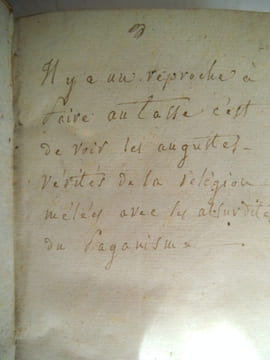 Il y a un réproche à
faire au tasse c'est
de voir les augustes
vérités de la réligion
mêlées avec les absurdités
du Paganisme